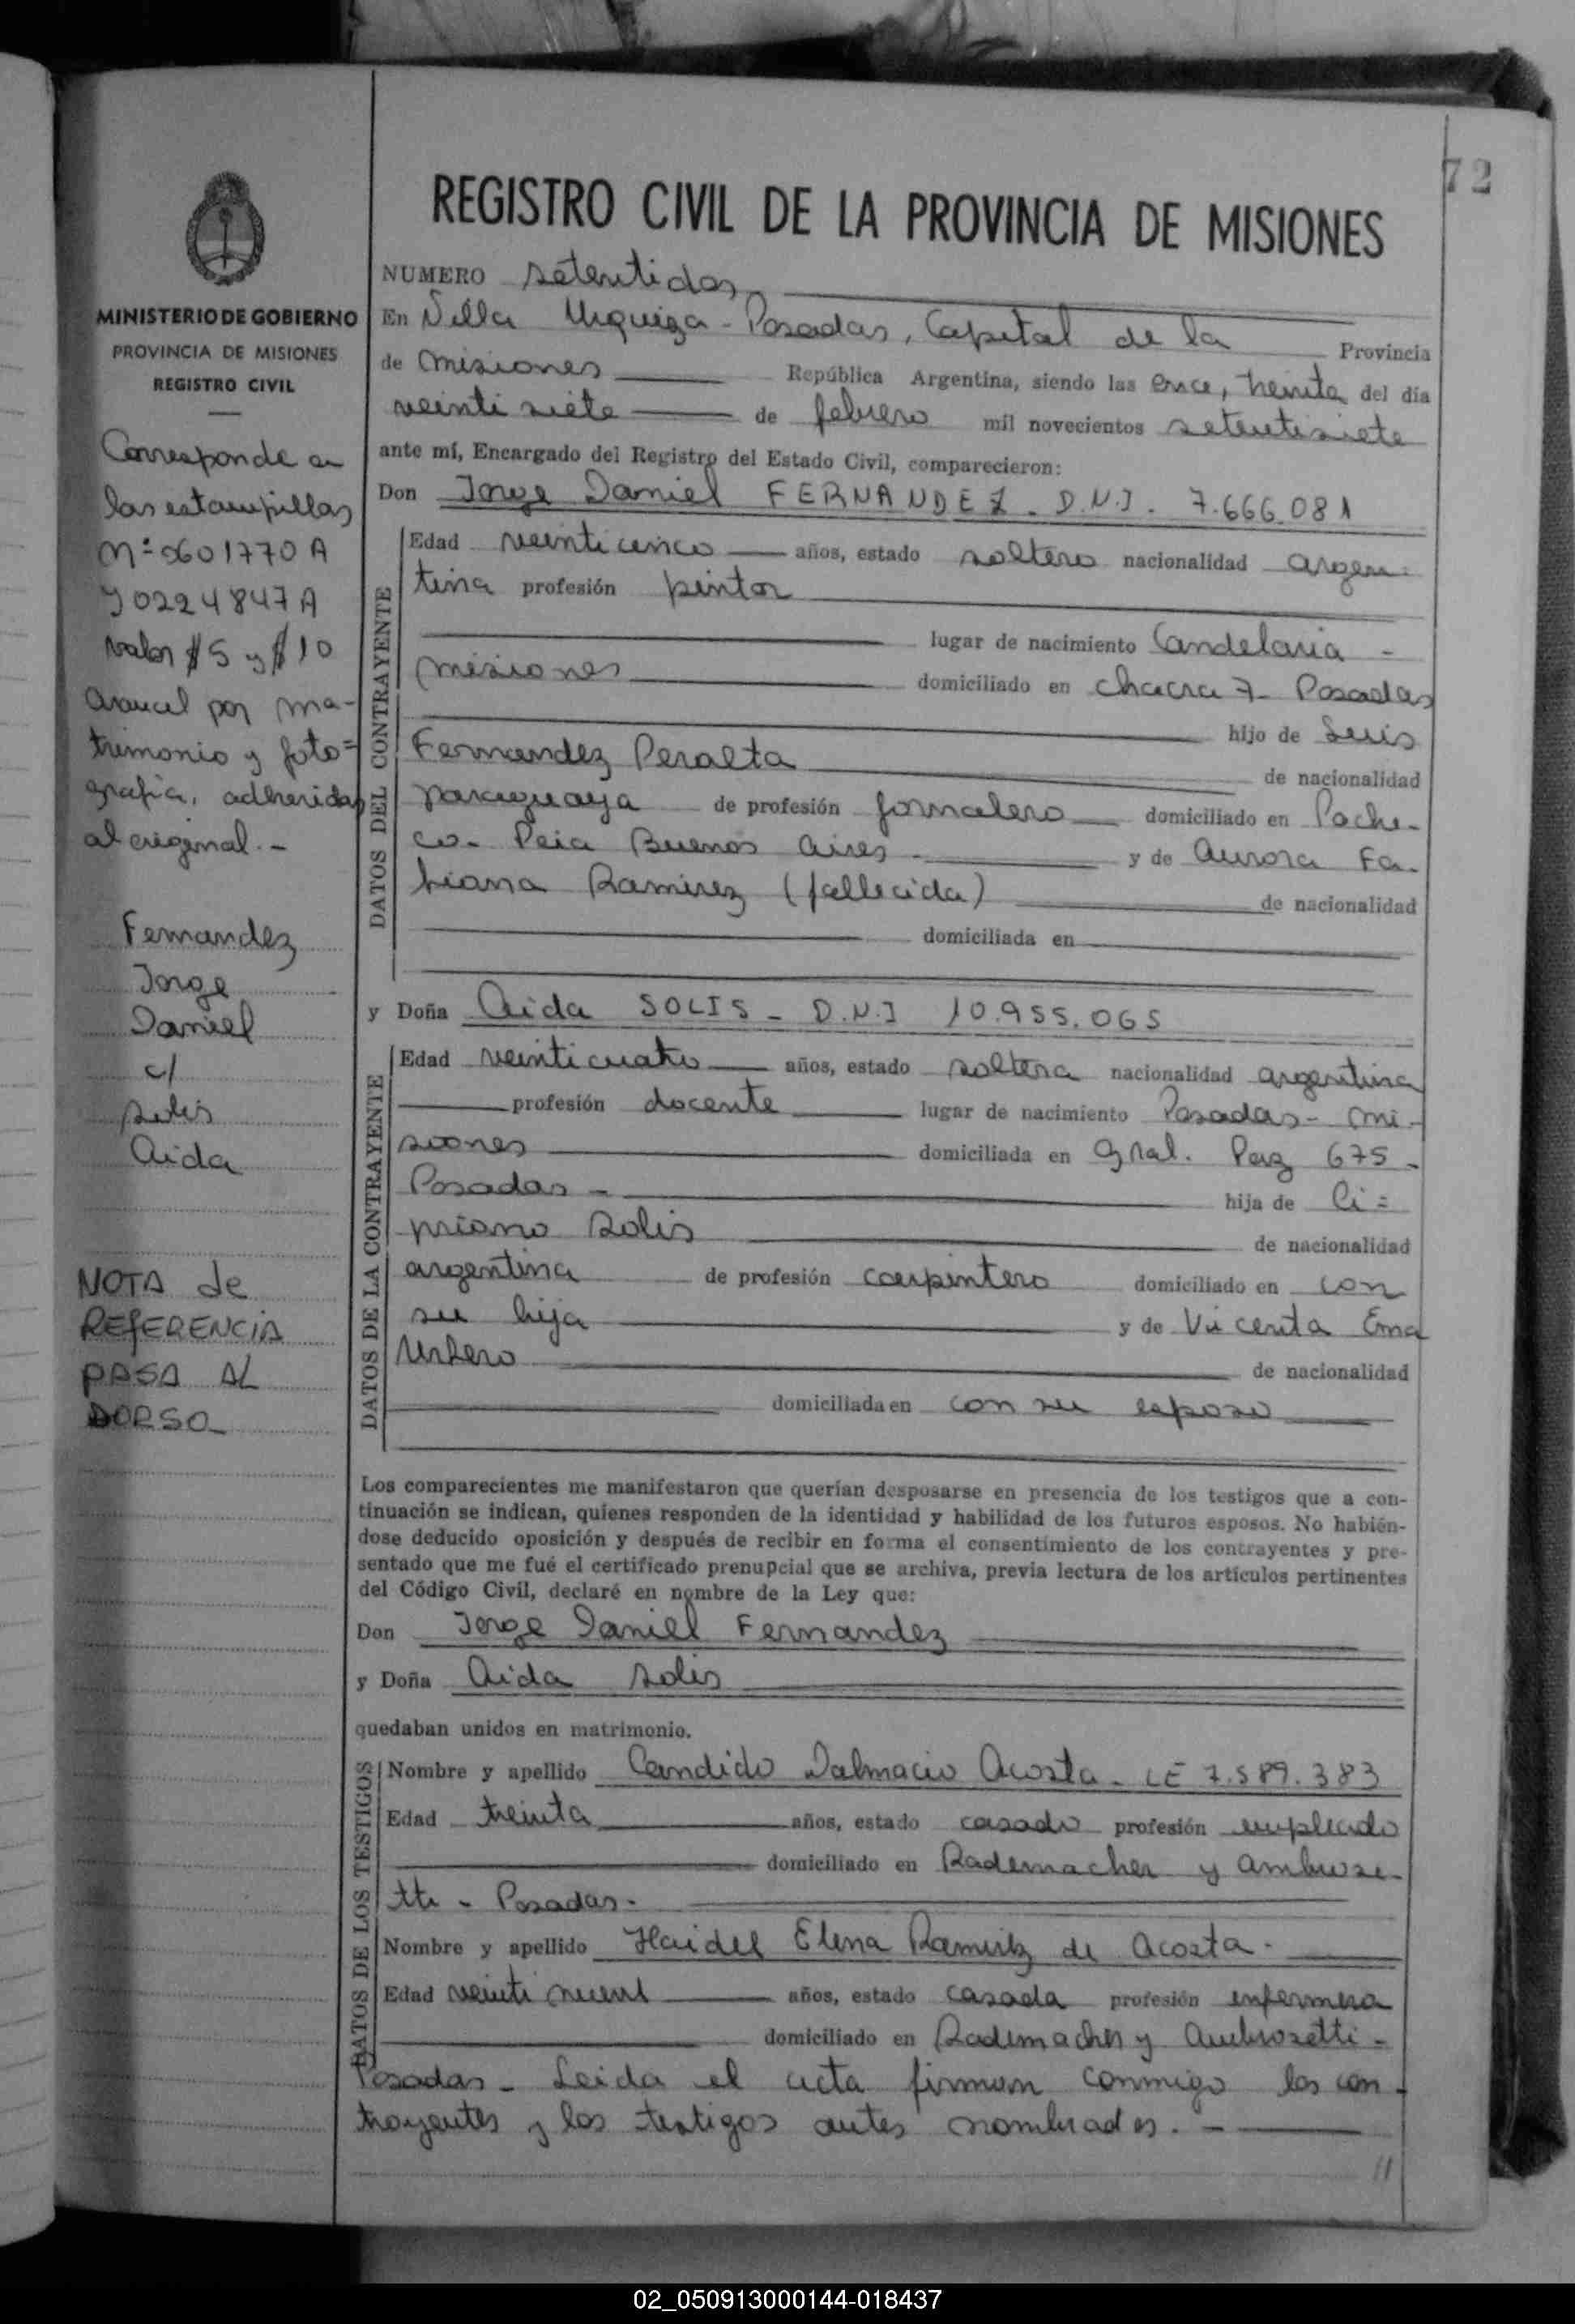 72
REGISTRO CIVIL DE LA PROVINCIA DE MISIONES
MINISTERIO DE GOBIERNO
PROVINCIA DE MISIONES
REGISTRO CIVIL
Corresponde a
las estampillas
Nº 0601770 A
y 0224847 A
valor $5 y $10
arancel por ma-
trimonio y foto=
grafia, adheridas
al original.-
Fernandez
Jorge
Daniel
c/
Solis
Aida
NOTA de
REFERENCIA
PASA AL
DORSO_
NUMERO setentidos
En Villa Urquiza - Posadas, Capital de la Provincia
de Misiones República Argentina, siendo las once, treinta del día
veintisiete de febrero mil novecientos setentisiete
ante mí, Encargado del Registro del Estado Civil, comparecieron:
Don Jorge Daniel FERNANDEZ - D.N.I. 7.666.081
DATOS DEL CONTRAYENTE
Edad veinticinco años, estado soltero nacionalidad argen-
tina profesión pintor
lugar de nacimiento Candelaria -
Misiones domiciliado en chacra 7 - Posadas
hijo de Luis
Fernandez Peralta de nacionalidad
paraguaya de profesión jornalero domiciliado en Pache-
co - Pcia Buenos Aires - y de Aurora Fa-
biana Ramirez (fallecida) de nacionalidad
domiciliada en
y Doña Aida SOLIS - D.N.I 10.955.065
DATOS DE LA CONTRAYENTE
Edad veinticuatro años, estado soltera nacionalidad argentina
profesión docente lugar de nacimiento Posadas - Mi-
siones domiciliada en Gral. Paz 675 -
Posadas - hija de Ci=
priano Solis de nacionalidad
argentina de profesión carpintero domiciliado en con
su hija y de Vicenta Ema
de nacionalidad
domiciliada en con su esposo
Los comparecientes me manifestaron que querían desposarse en presencia de los testigos que a con-
tinuación se indican, quienes responden de la identidad y habilidad de los futuros esposos. No habién-
dose deducido oposición y después de recibir en forma el consentimiento de los contrayentes y pre-
sentado que me fué el certificado prenupcial que se archiva, previa lectura de los artículos pertinentes
del Código Civil, declaré en nombre de la Ley que:
Don Jorge Daniel Fernandez
y Doña Aida Solis
quedaban unidos en matrimonio.
DATOS DE LOS TESTIGOS
Nombre y apellido Candido Dalmacio Acosta - LE 7.589.383
Edad treinta años, estado casado profesión empleado
domiciliado en Rademacher y Ambrose-
tti - Posadas -
Nombre y apellido Haidel Elena Ramirez de Acosta -
Edad veintinueve años, estado casada profesión enfermera
domiciliado en Rademacher y Ambrosetti -
Posadas - Leida el acta firman conmigo los con-
trayentes y los testigos antes nombrados. -
02_050913000144-018437